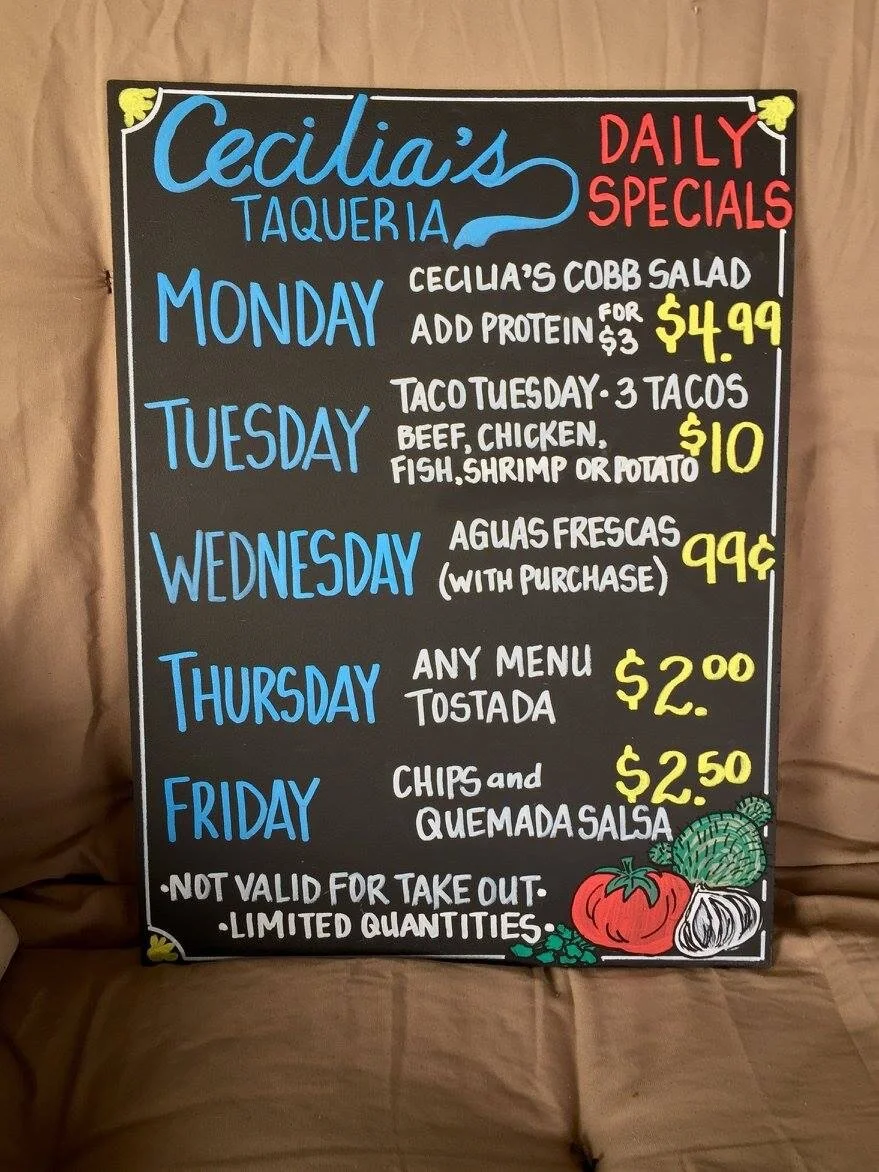 Cecilia's
TAQUERIA
DAILY
SPECIALS
MONDAY
CECILIA'S COBB SALAD
ADD PROTEIN FOR $3 $4.99
TUESDAY
TACO TUESDAY · 3 TACOS
BEEF, CHICKEN,
FISH, SHRIMP OR POTATO
$10
WEDNESDAY
AGUAS FRESCAS
(WITH PURCHASE)
99¢
THURSDAY
ANY MENU
TOSTADA
$2.00
FRIDAY
CHIPS and
QUEMADA SALSA
$2.50
·NOT VALID FOR TAKE OUT·
·LIMITED QUANTITIES·